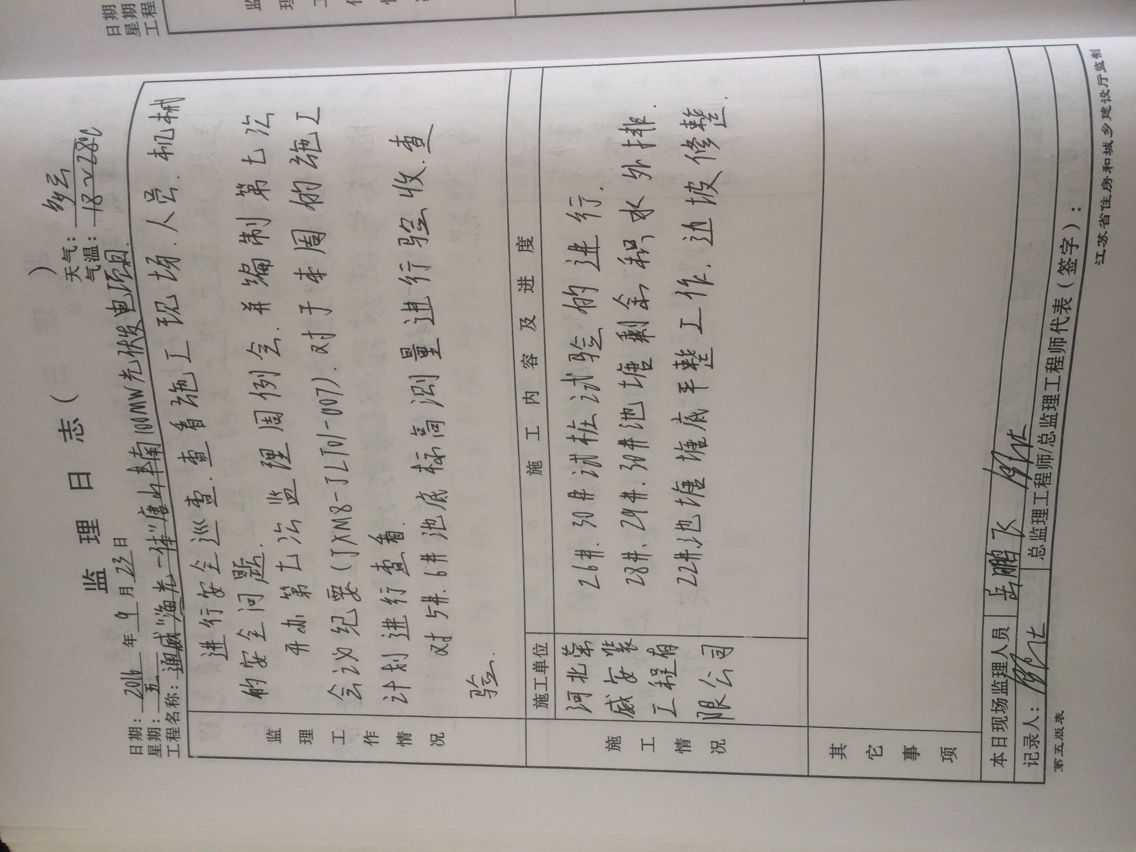 监理日志（ ）
日期：2016年9月23日 天气：多云
星期：五 气温：18~28℃
工程名称：通威"渔光一体"唐山丰南100MW光伏发电项目.
监理工作情况
进行安全巡查.查看施工现场.人员.机械
的安全问题.
开办第七次监理周例会.并编制第七次
会议纪要(JXM8-JLT01-007).对于本周的施工
计划进行查看.
对5#.6#池底标高测量进行验收.查
验.
施工情况
施工单位 施工内容及进度
河北荣
威安装
工程有
限公司
26#.30#试桩试验的进行.
28#.29#.30#池塘剩余积水外排.
22#池塘塘底平整工作.边坡修整.
其它事项
本日现场监理人员 岳鹏飞
记录人： 总监理工程师/总监理工程师代表（签字）：
第五版表 江苏省住房和城乡建设厅监制
日期
星期
工程
监理工作情况